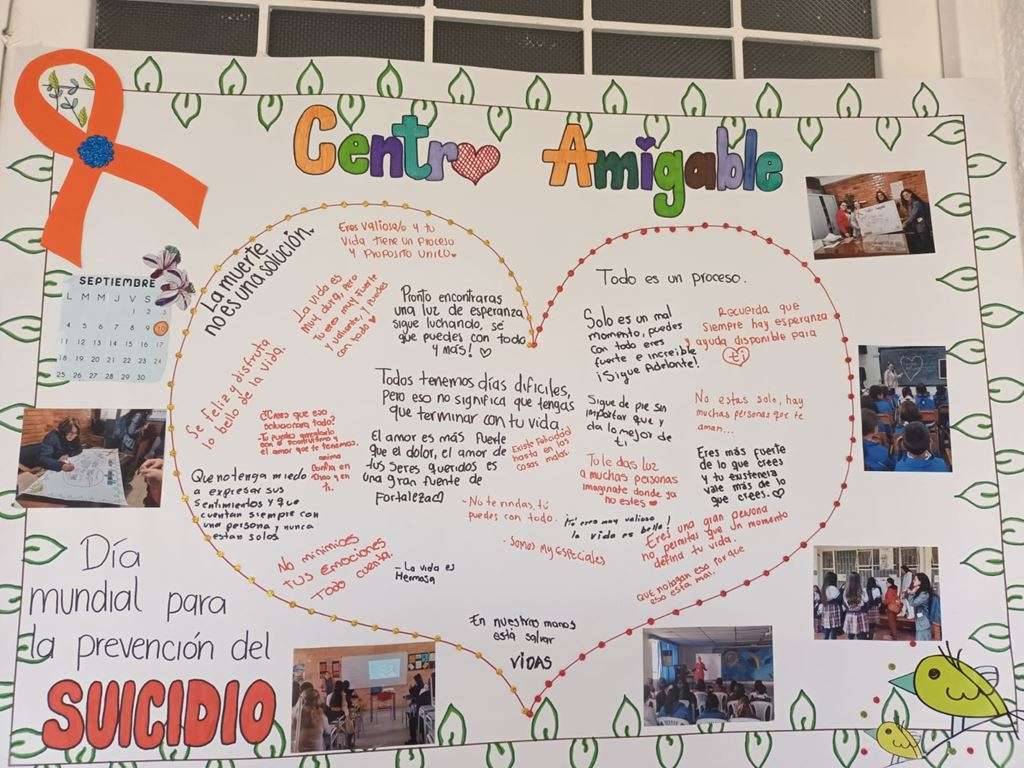 Centro Amigable
SEPTIEMBRE
L M M J V S
1 2 3
4 5 6 7 8 9 10
11 12 13 14 15 16 17
18 19 20 21 22 23 24
25 26 27 28 29 30
La muerte
no es una solución.
Eres valioso/a y tu
Vida tiene un Proceso
Y PROPOSITO UNICO.
La vida es
muy dura, pero
Tu eres muy fuerte
y valiente, y puedes
con todo
Pronto encontraras
una luz de esperanza,
sigue luchando, sé
que puedes con todo
y más!
Se feliz y disfruta
lo bello de la vida.
Todos tenemos días dificiles,
Pero eso no significa que tengas
que terminar con tu vida.
¿Crees que eso
soluciona todo?
el amor que te tenemos.
El amor es más fuerte
que el dolor, el amor de
tus seres queridos es
una gran fuente de
Fortaleza
Existe Felicidad
hasta en las
cosas malas.
Que no tenga miedo
a expresar sus
sentimientos y que
cuentan siempre con
una persona y nunca
estan solos
No minimises
TUS EMOCIONES
TODO cuenta.
- La vida es
Hermosa
- No te rindas, tú
puedes con todo.
- Somos muy especiales
Todo es un proceso.
Solo es un mal
momento, puedes
con todo eres
fuerte e increible
¡Sigue Adelante!
Recuerda que
siempre hay esperanza
y ayuda disponible para
ti
Sigue de pie sin
importar que y
da lo mejor de
ti
No estas solo, hay
muchas personas que te
aman...
Tu le das luz
a muchas personas
imaginate donde ya
no estes
Eres más fuerte
de lo que crees
y tu existencia
vale más de lo
que crees.
¡Tú eres muy valioso
la vida es bella!
Eres una gran persona
no permitas que un momento
defina tu vida.
Que no hagan eso porque
eso esta mal.
En nuestras manos
está salvar
VIDAS
Día
mundial para
la prevención del
SUICIDIO